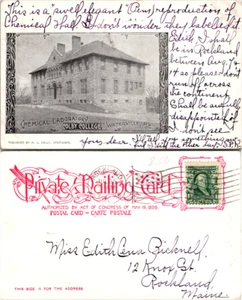 This is a "swell elegant" (Pen's) reproduction of
Chemical Hall. I don't wonder they labeled it.
Edith, I shall
be in Rockland
between Aug. 7 &
14 so please don't
run off across
the continent.
Shall be awfully
disappointed if I
don't see
you dear.
CHEMICAL LABORATORY
COLBY COLLEGE
Private Mailing Card
AUTHORIZED BY ACT OF CONGRESS OF MAY 19, 1898.
POSTAL CARD - CARTE POSTALE
Miss Edith Ann Bicknell,
12 Knox St.
Rockland,
Maine.
THIS SIDE IS FOR THE ADDRESS